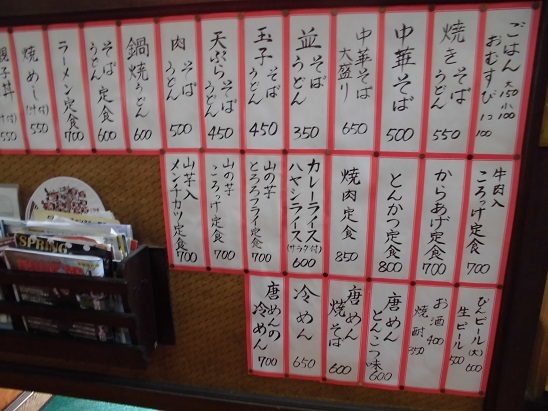 ごはん 大150 小100
おむすび 1コ 100
焼きそば
うどん 550
中華そば 500
中華そば
大盛り 650
並そば
うどん 350
玉子そば
うどん 450
天ぷらそば
うどん 450
肉そば
うどん 500
鍋焼うどん 600
そば
うどん定食 600
ラーメン定食 700
焼めし(汁付) 550
親子丼
550
牛肉入
ころっけ定食 700
からあげ定食 700
とんかつ定食 800
焼肉定食 850
カレーライス
ハヤシライス
(サラダ付) 600
山の芋
とろろフライ定食 700
山の芋
ころっけ定食 700
山芋入
メンチカツ定食 700
びんビール(大) 600
生ビール 500
お酒 400
焼酎 350
唐めん
とんこつ味 600
唐めん
焼そば 600
冷めん 650
唐めんの
冷めん 700
SPRING